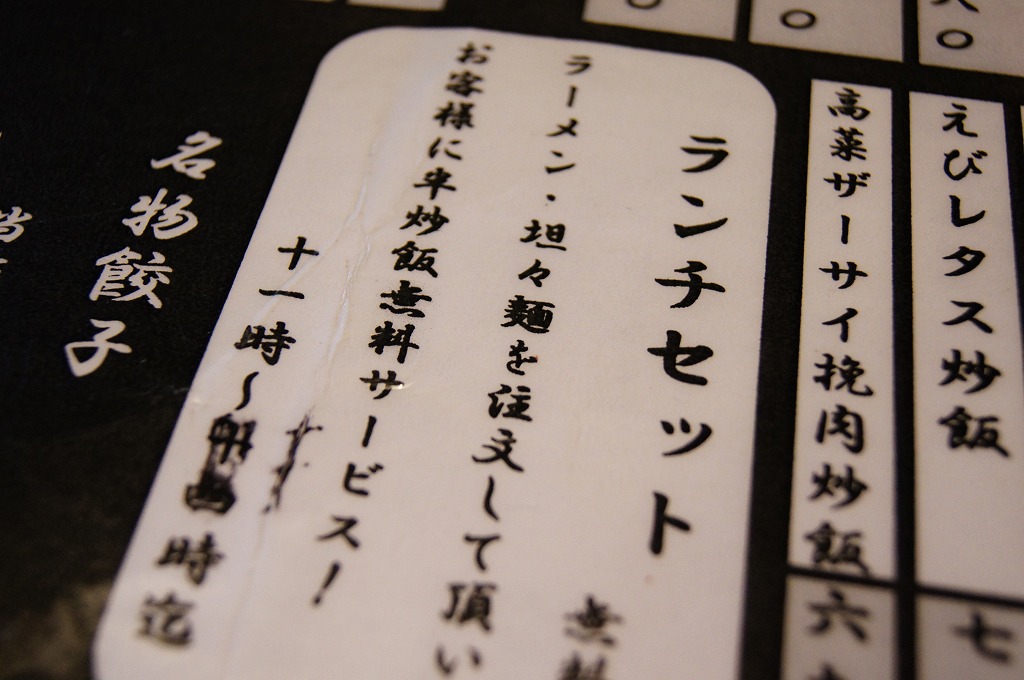 えびレタス炒飯
七
高菜ザーサイ挽肉炒飯
六
ランチセット
無料
ラーメン・坦々麺を注文して頂い
お客様に半炒飯無料サービス！
十一時～
時迄
名物餃子